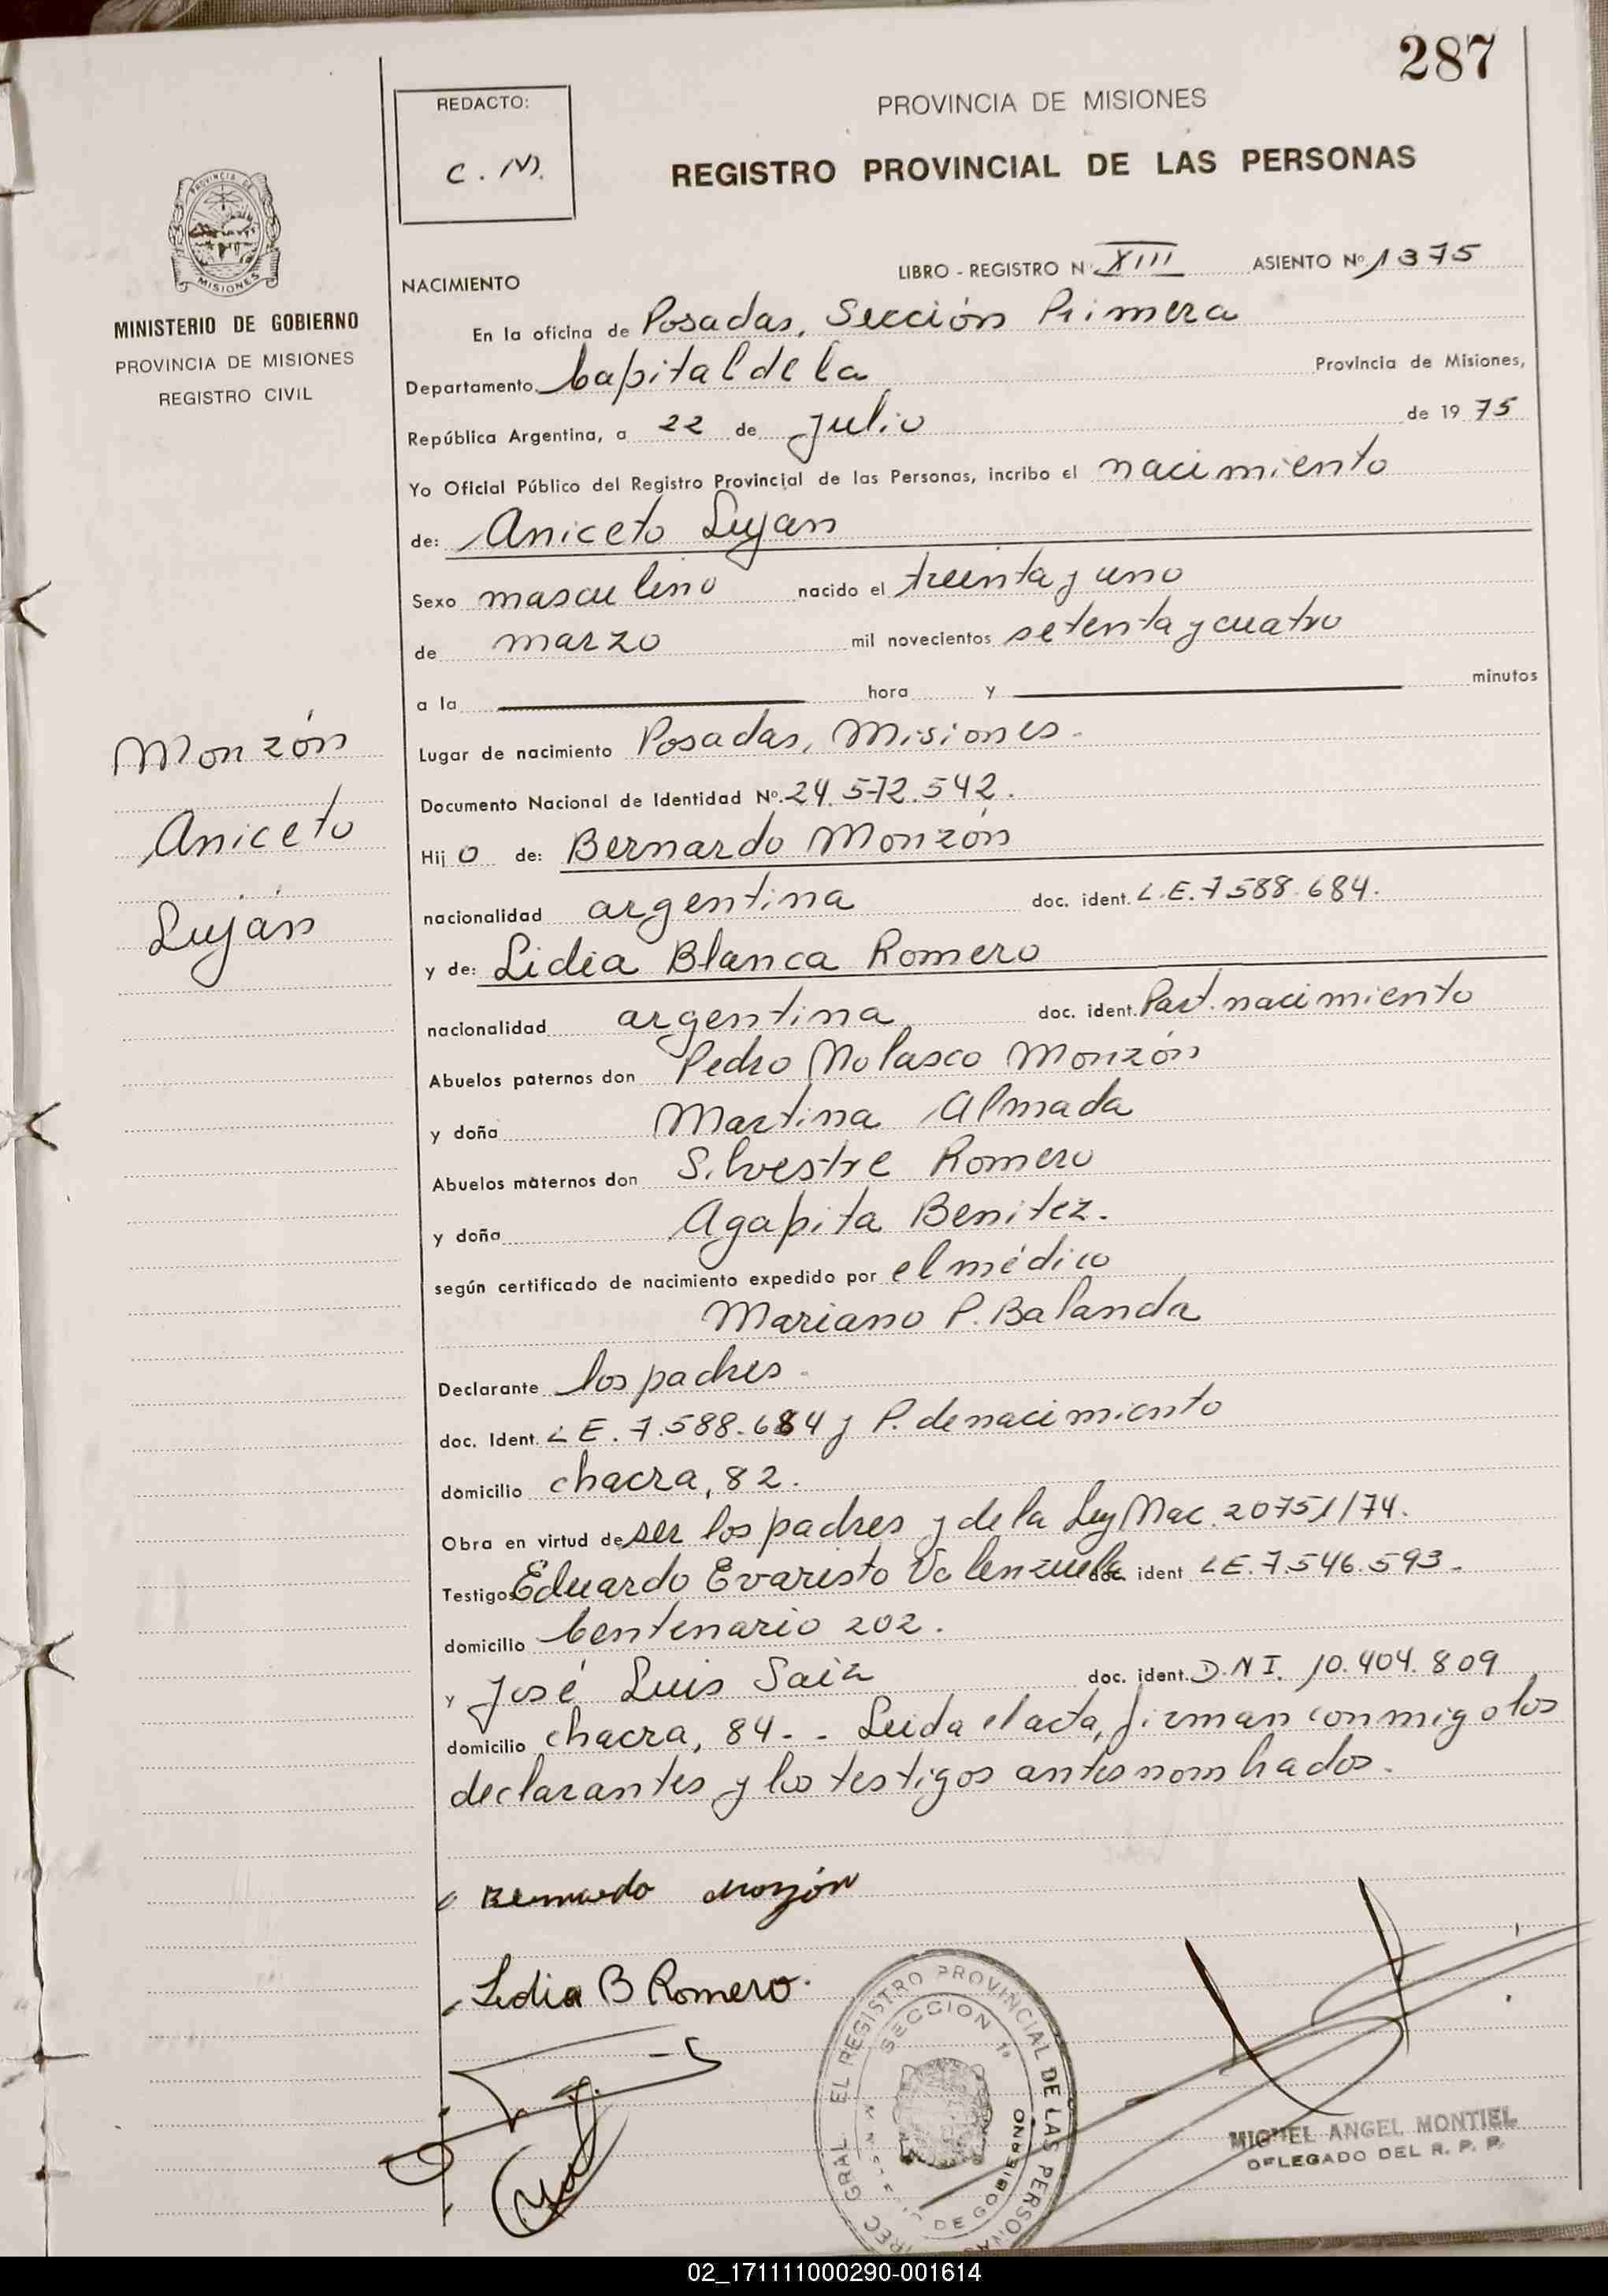 287
REDACTO:
C. M.
PROVINCIA DE MISIONES
REGISTRO PROVINCIAL DE LAS PERSONAS
PROVINCIA DE
MISIONES
MINISTERIO DE GOBIERNO
PROVINCIA DE MISIONES
REGISTRO CIVIL
Monzón
Aniceto
Luján
NACIMIENTO
LIBRO - REGISTRO N XIII ASIENTO Nº 1375
En la oficina de Posadas, Sección Primera
Departamento Capital de la Provincia de Misiones,
República Argentina, a 22 de julio de 1975
Yo Oficial Público del Registro Provincial de las Personas, incribo el nacimiento
de: Aniceto Lujan
Sexo masculino nacido el treinta y uno
de marzo mil novecientos setenta y cuatro
a la hora y minutos
Lugar de nacimiento Posadas, Misiones.
Documento Nacional de Identidad Nº. 24.572.542.
Hij o de: Bernardo Monzón
nacionalidad argentina doc. ident. L.E. 7588.684.
y de: Lidia Blanca Romero
nacionalidad argentina doc. ident. Part. nacimiento
Abuelos paternos don Pedro Nolasco Monzón
y doña Martina Almada
Abuelos maternos don Silvestre Romero
y doña Agapita Benitez.
según certificado de nacimiento expedido por el médico
Mariano P. Balanda
Declarante los padres.
doc. Ident. L E. 7.588.684 y P. de nacimiento
domicilio chacra, 82.
Obra en virtud de ser los padres y de la Ley Nac. 20751/74.
Testigos Eduardo Evaristo Valenzuela doc. ident LE. 7.546.593.
domicilio Centenario 202.
y José Luis Saiz doc. ident. D.N I. 10.404.809
domicilio chacra, 84.- Leida el acta, firman conmigo los
declarantes y los testigos antes nombrados.
Bernardo Monzón
Lidia B Romero.
GRAL. EL REGISTRO PROVINCIAL DE LAS PERSONAS
SECCION 1ª
DE GOBIERNO
MIGUEL ANGEL MONTIEL
DELEGADO DEL R. P. P.
02_171111000290-001614